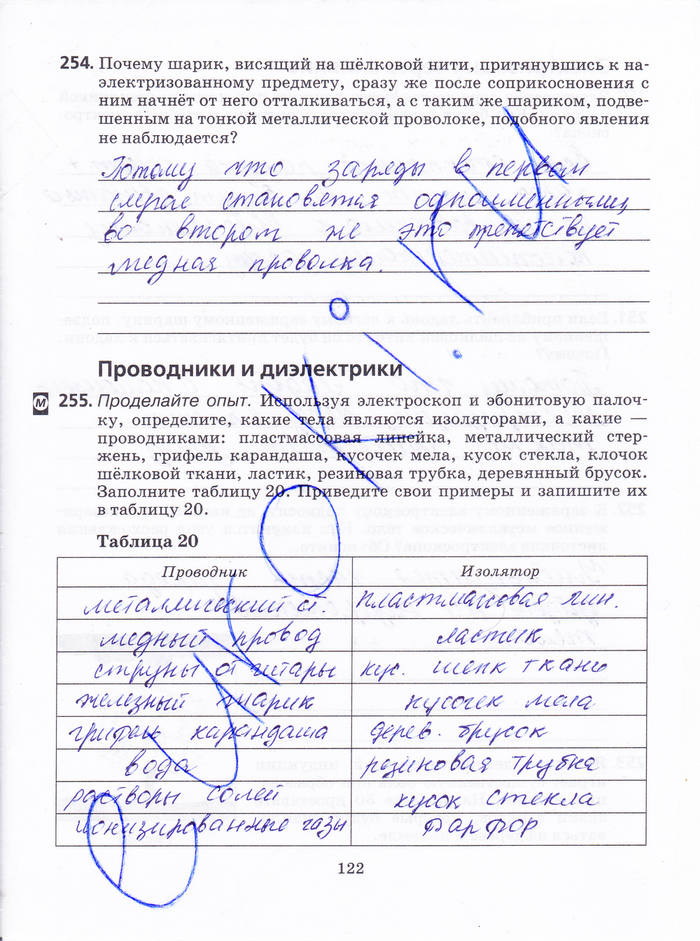 254. Почему шарик, висящий на шёлковой нити, притянувшись к на-
электризованному предмету, сразу же после соприкосновения с
ним начнёт от него отталкиваться, а с таким же шариком, подве-
шенным на тонкой металлической проволоке, подобного явления
не наблюдается?
Потому что заряды в первом
случае становятся одноименными,
во втором же это препятствует
медная проволка.
Проводники и диэлектрики
М 255. Проделайте опыт. Используя электроскоп и эбонитовую палоч-
ку, определите, какие тела являются изоляторами, а какие —
проводниками: пластмассовая линейка, металлический стер-
жень, грифель карандаша, кусочек мела, кусок стекла, клочок
шёлковой ткани, ластик, резиновая трубка, деревянный брусок.
Заполните таблицу 20. Приведите свои примеры и запишите их
в таблицу 20.
Таблица 20
Проводник Изолятор
металлический ст. пластмассовая лин.
медный провод ластик
струны от гитары кус. шелк ткани
железный шарик кусочек мела
грифель карандаша дерев. брусок
вода резиновая трубка
растворы солей кусок стекла
ионизированные газы фарфор
122